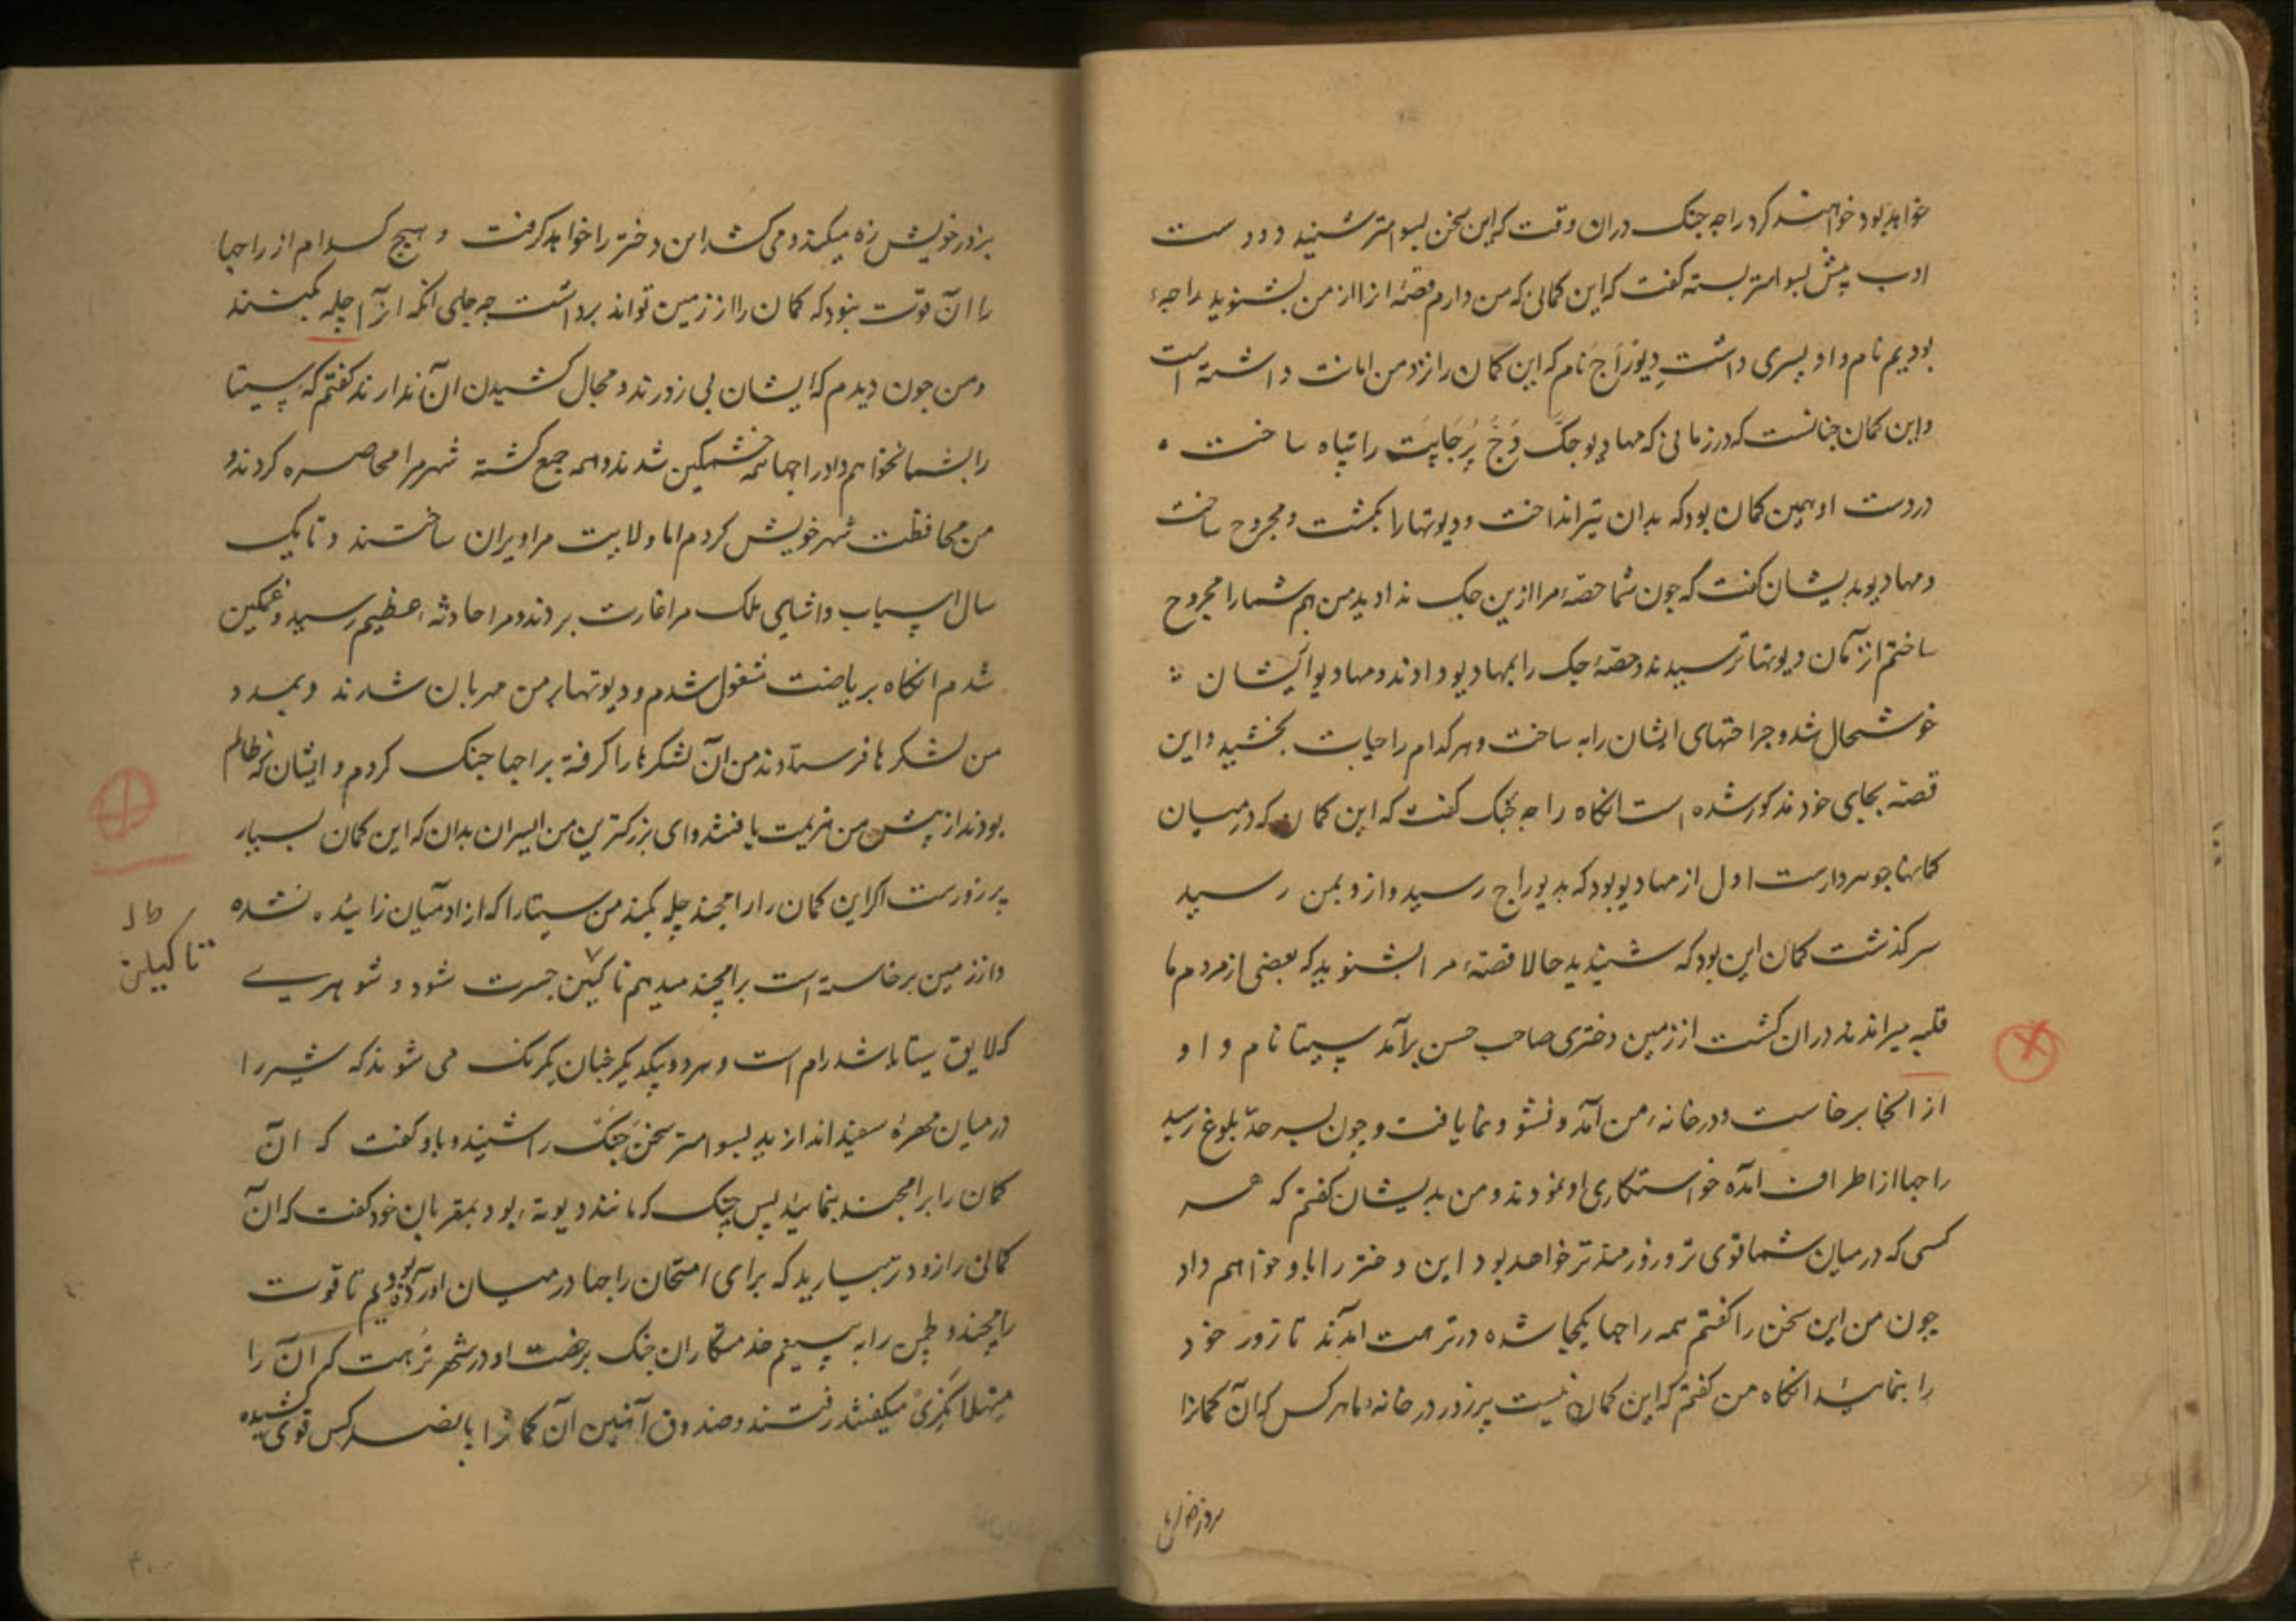 خواهد بود خواهند کرد راجه جنک دران وقت که این سخن بسوامتر شنید دو دست
ادب پیش بسوامتر بسته کفت که این کمانی که من دارم قصهٔ انرا از من بشنوید راجهٔ
بودیم نام و او پسری داشت دیوراج نام که این کمان را نزد من امانت داشته است
و این کمان چنانست که در زمانی که مهادیو جک دچ پرجاپت را تباه ساخت
در دست او همین کمان بود که بدان تیر انداخت و دیوتها را بکشت و مجروح ساخت
و مهادیو بدیشان کفت که چون شما حصهٔ مرا ازین جک ندادید من هم شما را مجروح
ساختم ازآن دیوتها ترسیدند و حصهٔ جک را بمهادیو دادند و مهادیو از ایشان
خوشحال شد و جراحتهای ایشان را به ساخت و هر کدام را حیات بخشید و این
قصه بجای خود مذکور شده است انکاه راجه جنک کفت که این کمان که درمیان
کمانها جوهردارست اول از مهادیو بود که بدیوراج رسید و ازو بمن رسید
سرکذشت کمان این بود که شنیدید حالا قصهٔ مرا بشنوید که بعضی از مردم ما
قلبه میراندند دران کشت از زمین دختری صاحب حسن برآمد سیتا نام و او
از انجا برخاست و در خانهٔ من آمد و نشو و نما یافت و چون بسر حد بلوغ رسید
راجها از اطراف آمده خواستکاری او نمودند و من بدیشان کفتم که هر
کسی که درمیان شما قوی تر و زورمندتر خواهد بود این دختر را باو خواهم داد
چون من این سخن را کفتم همه راجها یکجا شده در ترهت آمدند تا زور خود
را بنمایند انکاه من کفتم که این کمان نیست پرزور در خانه ما هر کس که آن کمانرا
بزور خویش
بزور خویش زه میکند و می کشد این دختر را خواهد کرفت و هیچ کدام از راجها
را آن قوت نبود که کمان را از زمین تواند برداشت چه جای انکه انرا چله بکشند
و من چون دیدم که ایشان بی زورند و مجال کشیدن آن ندارند کفتم که سیتا
را بشما نخواهم داد راجها همه خشمکین شدند و همه جمع کشته شهر مرا محاصره کردند و
من محافظت شهر خویش کردم اما ولایت مرا ویران ساختند و تا یک
سال اسباب و اشیای ملک مرا غارت بردند و مرا حادثهٔ عظیم رسید و غمکین
شدم انکاه بریاضت مشغول شدم و دیوتها بر من مهربان شدند و بمدد
من لشکرها فرستادند من آن لشکرها را کرفته براجها جنک کردم و ایشان که ظالم
بودند از پیش من هزیمت یافتند و ای بزرکترین من السیران بدان که این کمان بسیار
پرزورست اکر این کمان را رامچند چله بکند من سیتا را که از ادمیان زائیده نشده
و از زمین برخاسته است برامچند میدهم تا کیلن جسرت شود و شوهری
تا کیلن
که لایق سیتا باشد رام است و هر دو بیکدیکر چنان یکرنک می شوند که شیر را
درمیان مهرهٔ سفید اندازند بسوامتر سخن جنک را شنید و باو کفت که آن
کمان را برامچند بنمائید پس جنک که مانند دیوته بود بمقربان خود کفت که آن
کمان را زودتر بیارید که برای امتحان راجها درمیان آورده بودیم تا قوت
رامچند و لچمن را به بینم خدمتکاران جنک برخصت او در شهر ترهت که آن را
متهلا نکری میکفتند رفتند و صندوق آهنین آن کمان را پانصد کس قوی کشیده